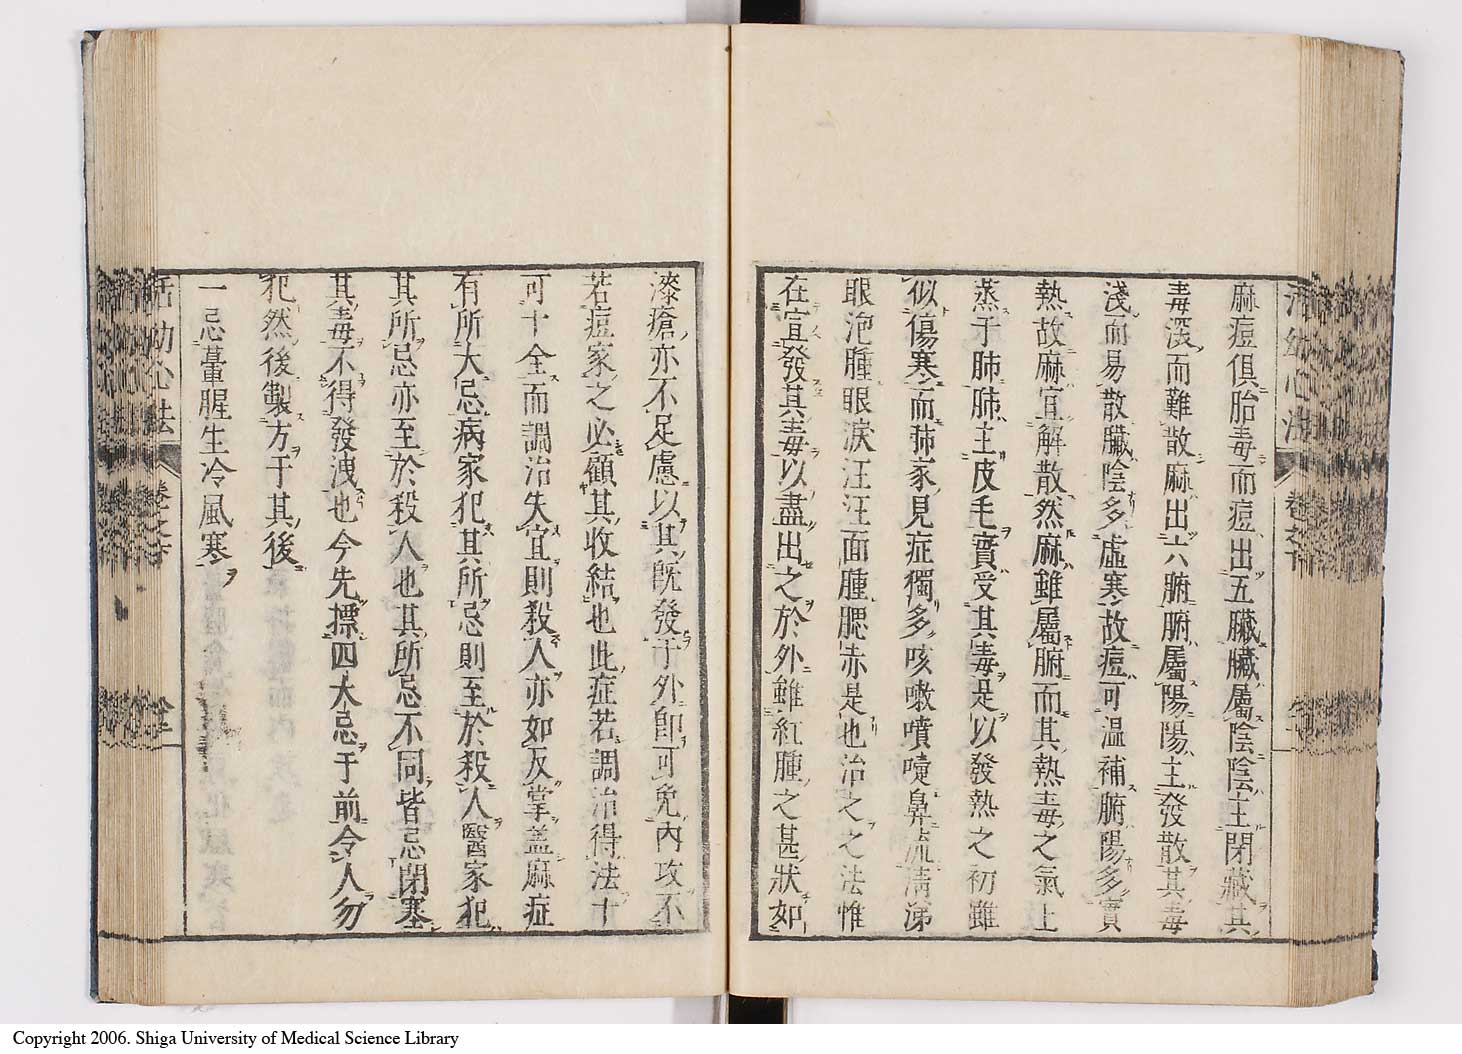 活幼心法 卷之下
麻痘俱胎毒而痘出五臟臟屬陰陰主閉藏其
毒深而難散麻出六腑腑屬陽陽主發散其毒
淺而易散臟陰多虛寒故痘可溫補腑陽多實
熱故麻宜解散然麻雖屬腑而其熱毒之氣上
蒸于肺肺主皮毛實受其毒是以發熱之初雖
似傷寒而肺家見症獨多咳嗽噴嚏鼻流淸涕
眼泡腫眼淚汪汪面腫腮赤是也治之之法惟
在宜發其毒以盡出之於外雖紅腫之甚狀如
漆瘡亦不足慮以其旣發于外卽可免內攻不
若痘家之必顧其收結也此症若調治得法十
可十全而調治失宜則殺人亦如反掌盖麻症
有所大忌病家犯其所忌則至於殺人醫家犯
其所忌亦至於殺人也其所忌不同皆忌閉塞
其毒不得發洩也今先摽四大忌于前令人勿
犯然後製方于其後
一忌葷腥生冷風寒
活幼心法 卷之下
Copyright 2006. Shiga University of Medical Science Library